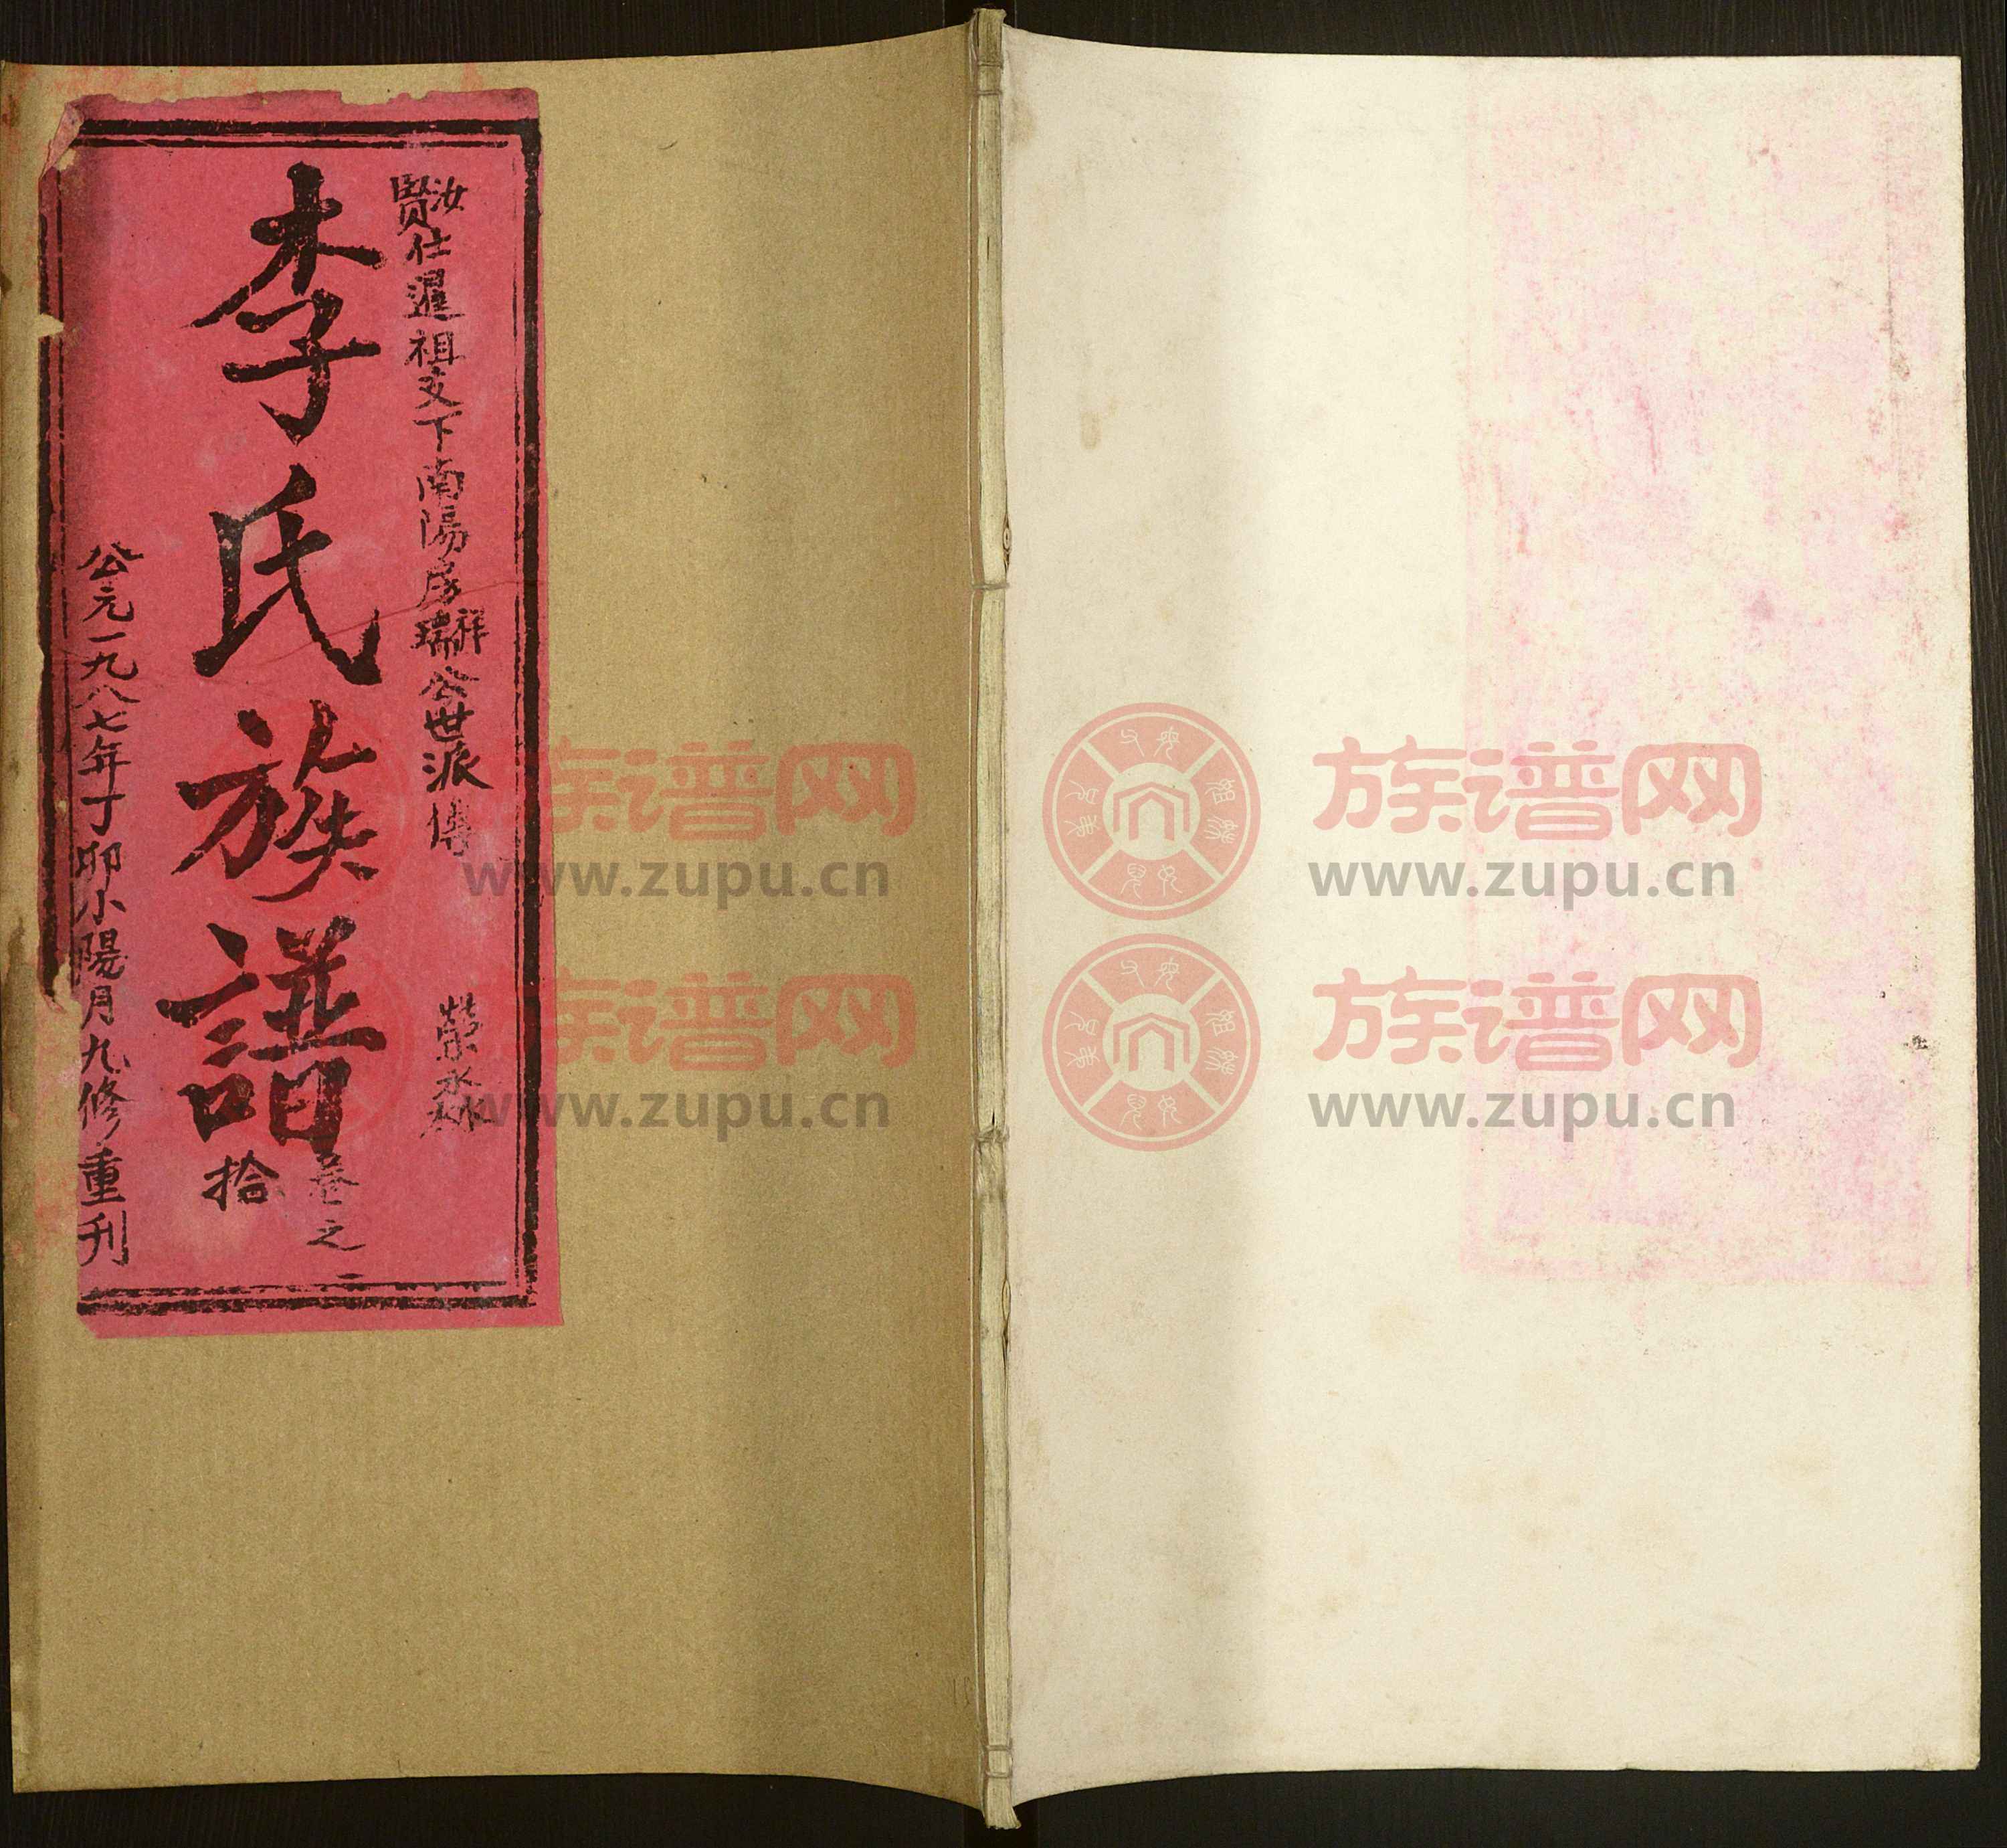 汝賢仕暹祖支下南陽房祥瑞公世派傳 榮
李氏族譜 卷之拾
公元一九八七年丁卯小陽月九修重刋
族谱网
www.zupu.cn
族谱网
www.zupu.cn
族谱网
www.zupu.cn
族谱网
www.zupu.cn